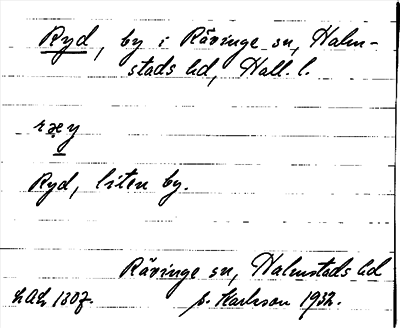 Ryd, by i Rävinge sn, Halm-
stads hd, Hall. l.
ryd
Ryd, liten by.
Rävinge sn, Halmstads hd
LAL 1307. Karlsson 1932.